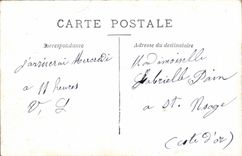 CARTE POSTALE
Correspondance
Adresse du destinataire
J'arriverai Mercredi
à 11 heures
V. L
Mademoiselle
Gabrielle Pain
à St. Usage
(Cote d'or)